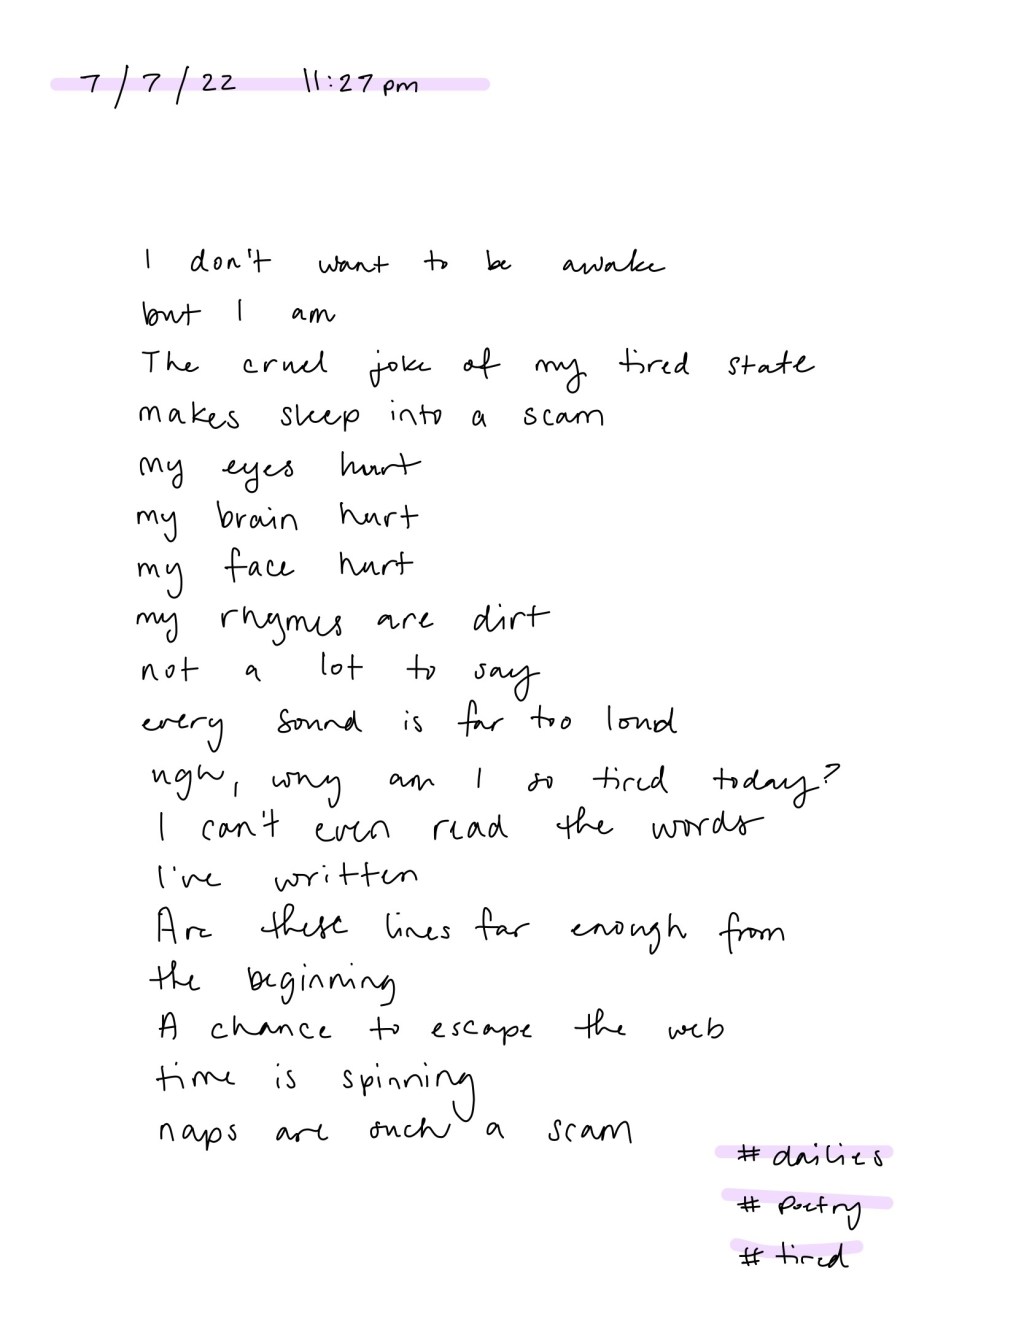 7/7/22 11:27 pm
I don't want to be awake
but I am
The cruel joke of my tired state
makes sleep into a scam
my eyes hurt
my brain hurt
my face hurt
my rhymes are dirt
not a lot to say
every sound is far too loud
ugh, why am I so tired today?
I can't even read the words
I've written
Are these lines far enough from
the beginning
A chance to escape the web
time is spinning
naps are such a scam
# dailies
# poetry
# tired